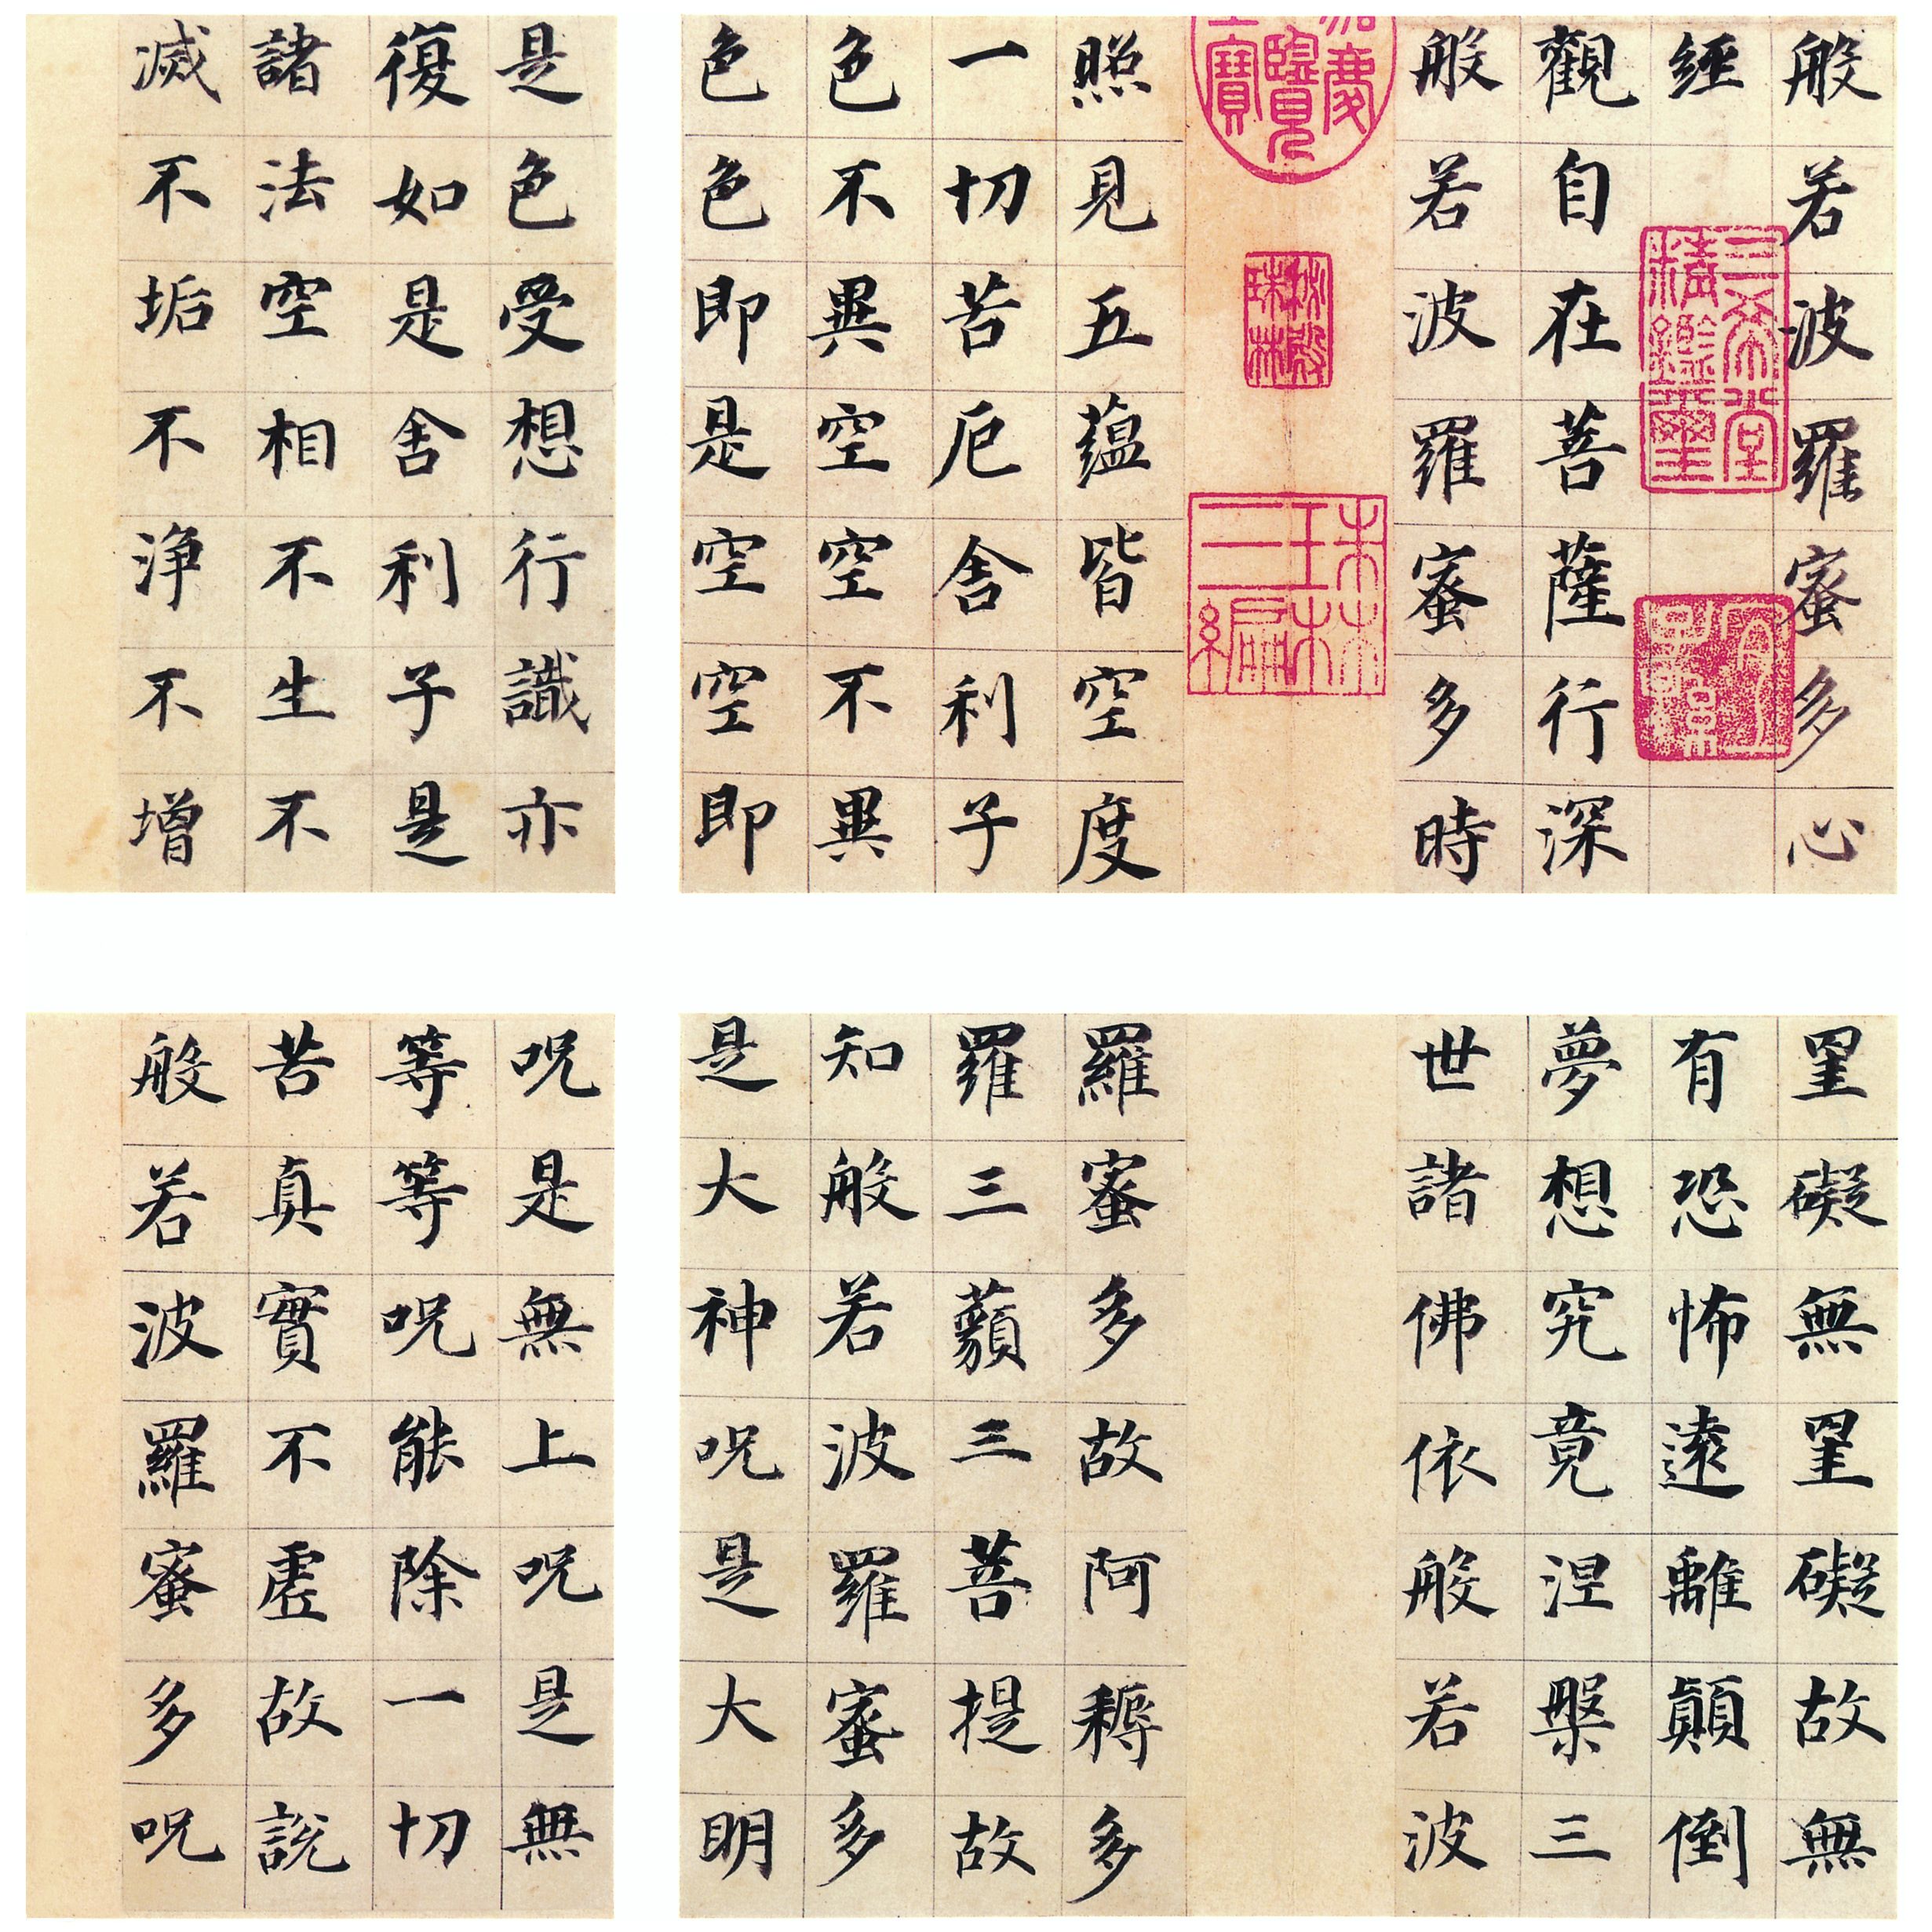 般若波羅蜜多心
經
三希堂精鑑璽
宜子孫
觀自在菩薩行深
般若波羅蜜多時
秘殿珠林
照見五蘊皆空度
一切苦厄舍利子
色不異空空不異
色色即是空空即
是色受想行識亦
復如是舍利子是
諸法空相不生不
滅不垢不淨不增
罣礙無罣礙故無
有恐怖遠離顛倒
夢想究竟涅槃三
世諸佛依般若波
羅蜜多故阿耨多
羅三藐三菩提故
知般若波羅蜜多
是大神呪是大明
呪是無上呪是無
等等呪能除一切
苦真實不虛故說
般若波羅蜜多呪